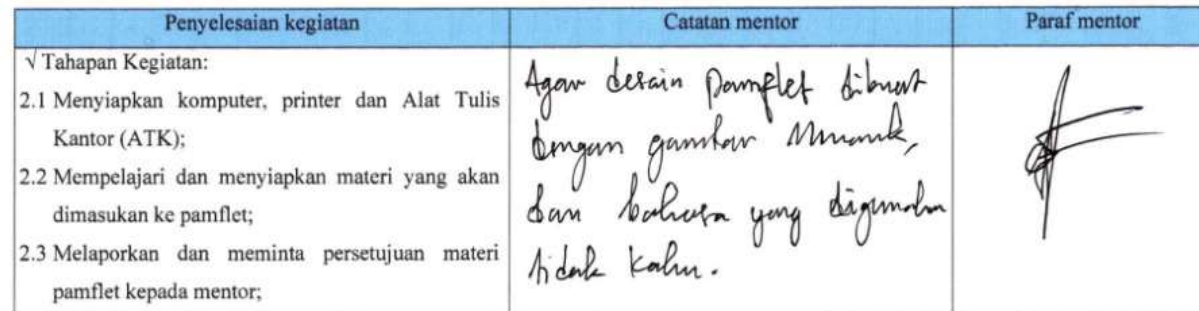 Penyelesaian kegiatan
Catatan mentor
Paraf mentor
√ Tahapan Kegiatan:
2.1 Menyiapkan komputer, printer dan Alat Tulis
Kantor (ATK);
2.2 Mempelajari dan menyiapkan materi yang akan
dimasukan ke pamflet;
2.3 Melaporkan dan meminta persetujuan materi
pamflet kepada mentor;
Agar desain pamflet dibuat
dengan gambar menarik,
dan bahasa yang digunakan
tidak kaku.